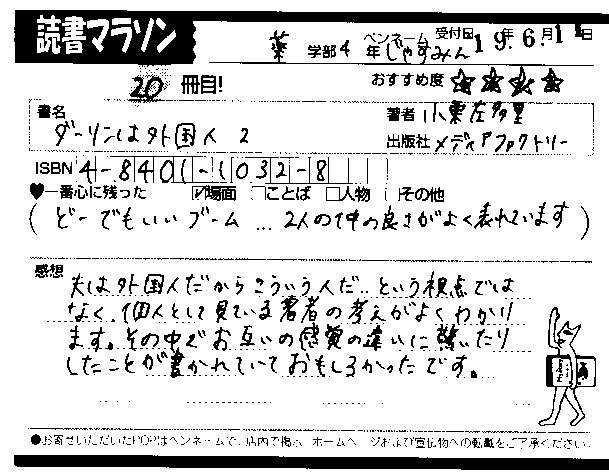 読書マラソン
薬 学部 4 年 ペンネーム じゃすみん 受付日 19年.6.月11日
20 冊目! おすすめ度 ★★★★
書名 ダーリンは外国人 2
著者 小栗左多里
出版社 メディアファクトリー
ISBN 4-8401-1032-8
♥一番心に残った ☑場面 □ことば □人物 □その他
(どーでもいいブーム…2人の仲の良さがよく表れています)
感想
夫は外国人だからこういう人だ…という視点では
なく、個人として見ている著者の考えがよくわかり
ます。その中でお互いの感覚の違いに驚いたり
したことが書かれていておもしろかったです。
●お寄せいただいたPOPはペンネームで、店内で掲示、ホームページおよび宣伝物への転載をご了承ください。